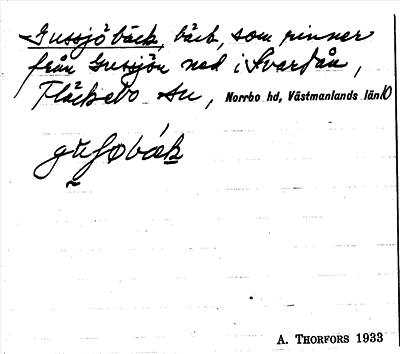 Gussjöbäck, bäck, som rinner
från Gussjön ned i Svartån,
Fläckebo sn, Norrbo hd, Västmanlands län
A. THORFORS 1933